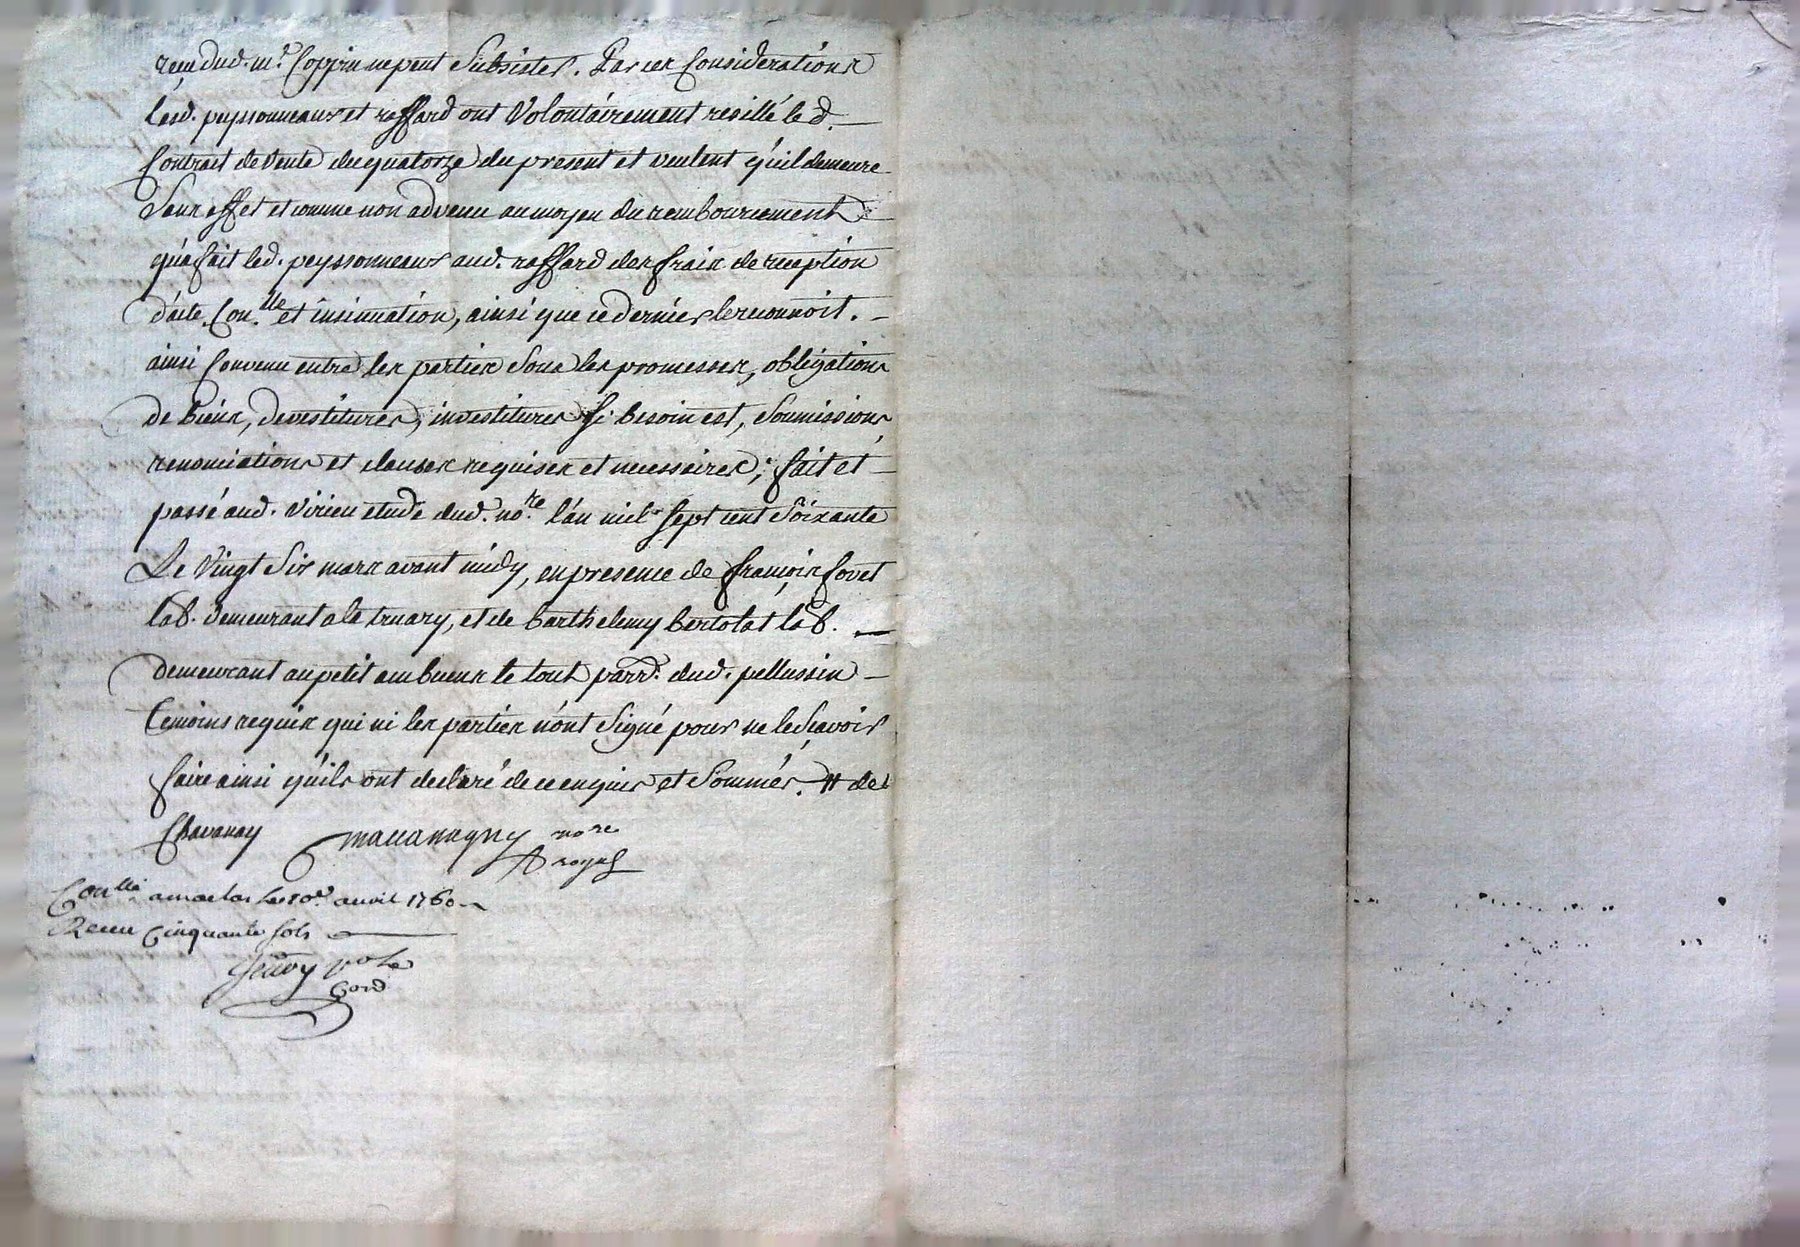 reçu dud. mr. Coppin ne peut Subsister. Par ces Considerations
lesd. peyssonneaux et raffard ont Volontairement resillé led.
Contrait de Vente du quatorze du present et veulent qu'il demeure
Sans effet et comme non advenu au moyen du remboursement
qu'a fait led. peyssonneaux aud. raffard des frais de reception
d'acte, Con.lle et insinuation, ainsi que ce dernier le reconnoit.
ainsi Convenu entre les parties Sous les promesses, obligations
de biens, devestitures, investitures Si besoin est, Soumissions,
renonciations et clauses requises et necessaires; fait et
passé aud. Virieu etude dud. no.re l'an mil Sept cent Soixante
Le Vingt Six mars avant midy, en presence de françois fovet
lab. demeurant a la truary, et de barthelemy bertolat lab.
demeurant au petit embuent le tout parr. dud. pellussin
temoins requis qui ni les parties n'ont Signé pour ne le Sçavoir
faire ainsi qu'ils ont declaré de ce enquis et Sommés. # de
Chavanay no re
royal
Con.lle a maclas le 10e. avril 1760
Receu Cinquante sols